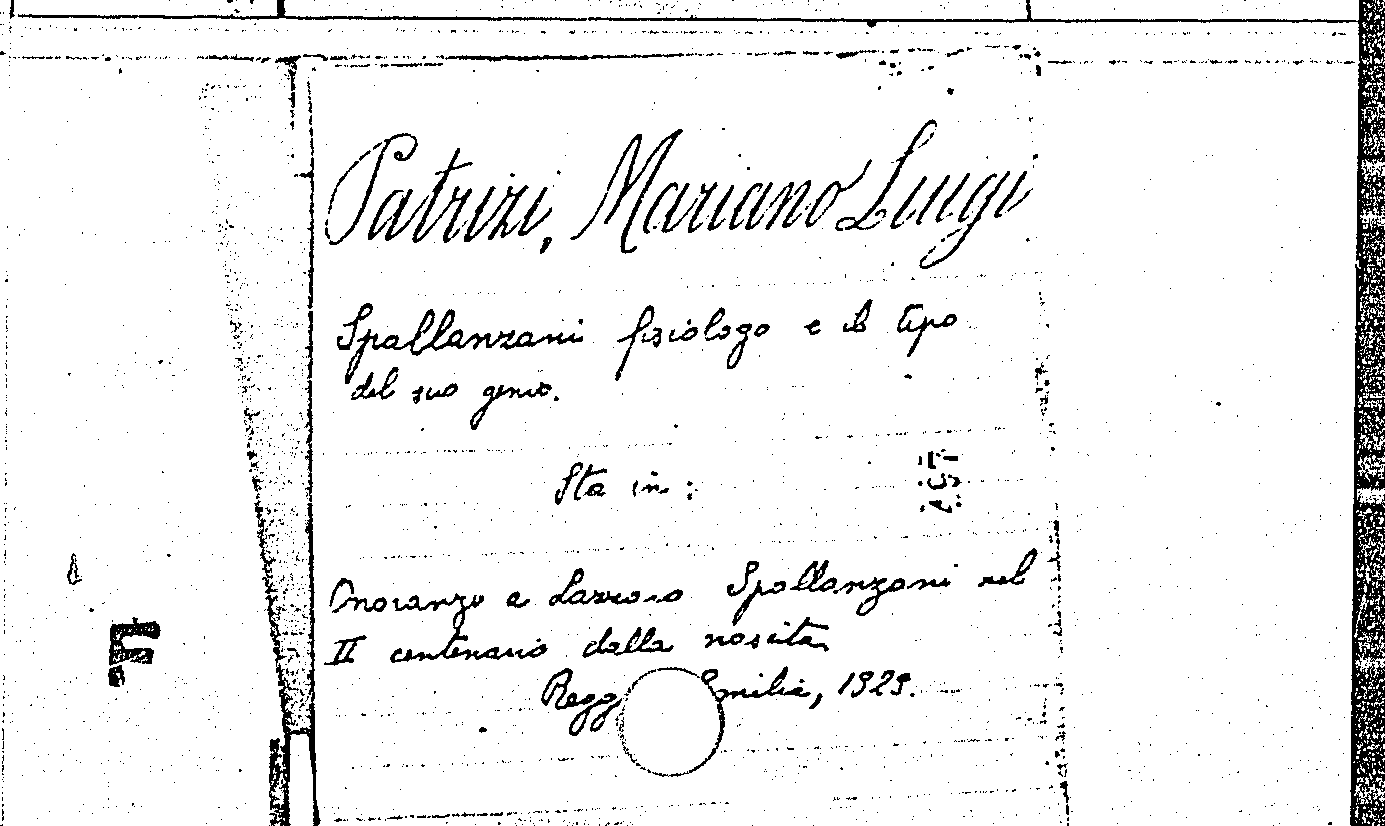 Patrizi, Mariano Luigi
Spallanzani fisiologo e il tipo
del suo genio.
Sta in:
Onoranze a Lazzaro Spallanzani nel
II centenario dalla nascita
Regg Emilia, 1929.